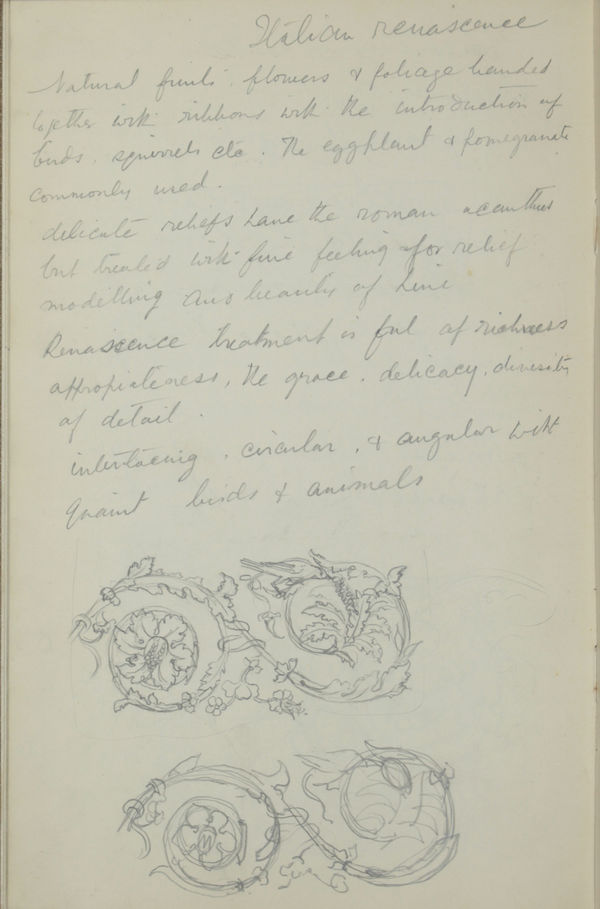 Italian renascence
Natural fruits, flowers & foliage banded
together with ribbons with the introduction of
birds, squirrels etc. The eggplant & pomegranate
commonly used.
delicate reliefs have the roman acanthus
but treated with fine feeling for relief
modelling and beauty of line
Renascence treatment is full of richness
appropiateness, the grace, delicacy, diversity
of detail.
interlacing, circular, & angular with
quaint birds & animals